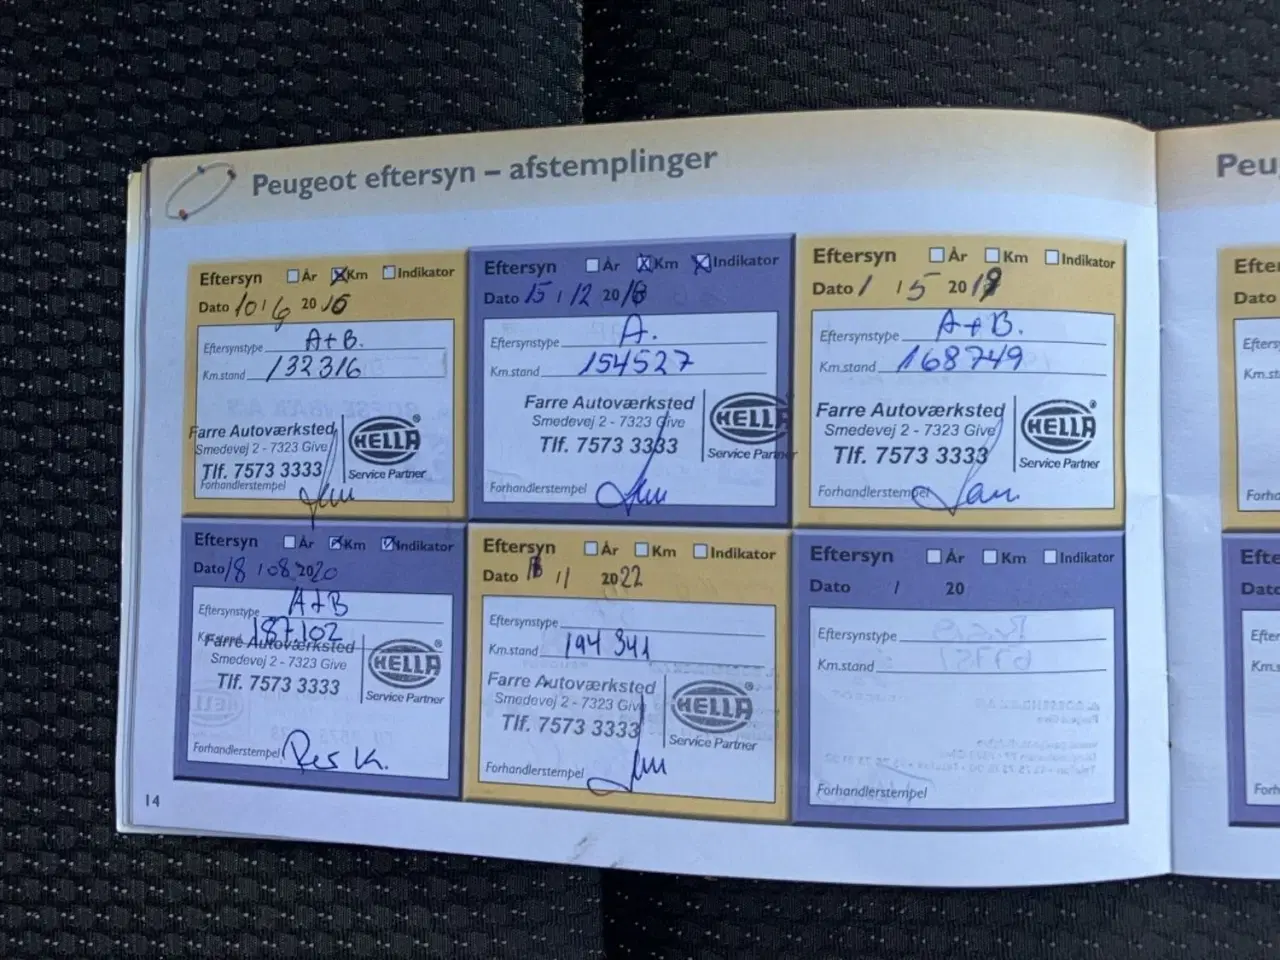 Peugeot eftersyn – afstemplinger
Peu
Eftersyn År Km Indikator
Dato 10 / 6 20 16
Eftersynstype A+B.
Km.stand 132316
Farre Autoværksted
Smedevej 2 - 7323 Give
Tlf. 7573 3333
HELLA
Service Partner
Forhandlerstempel
Eftersyn År Km Indikator
Dato 15 / 12 20
Eftersynstype A.
Km.stand 154527
Farre Autoværksted
Smedevej 2 - 7323 Give
Tlf. 7573 3333
HELLA
Service Partner
Forhandlerstempel
Eftersyn År Km Indikator
Dato 1 / 5 2019
Eftersynstype A+B.
Km.stand 168749
Farre Autoværksted
Smedevej 2 - 7323 Give
Tlf. 7573 3333
HELLA
Service Partner
Forhandlerstempel
Eftersyn År Km Indikator
Dato 18 / 08 2020
Eftersynstype A+B
Km.stand 187.102
Farre Autoværksted
Smedevej 2 - 7323 Give
Tlf. 7573 3333
HELLA
Service Partner
Forhandlerstempel
Eftersyn År Km Indikator
Dato / 11 2022
Eftersynstype
Km.stand 194 341
Farre Autoværksted
Smedevej 2 - 7323 Give
Tlf. 7573 3333
HELLA
Service Partner
Forhandlerstempel
Eftersyn År Km Indikator
Dato / 20
Eftersynstype
Km.stand
Forhandlerstempel
Efter
Dato
Efters
Km.st
Forha
Efte
Dato
Efter
Km.s
Forh
14